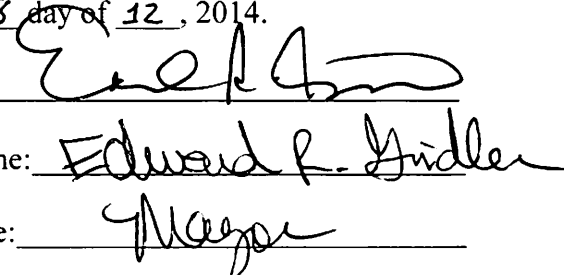 day of 12, 2014.
ne: Edward R. Gridler
e: Mayor